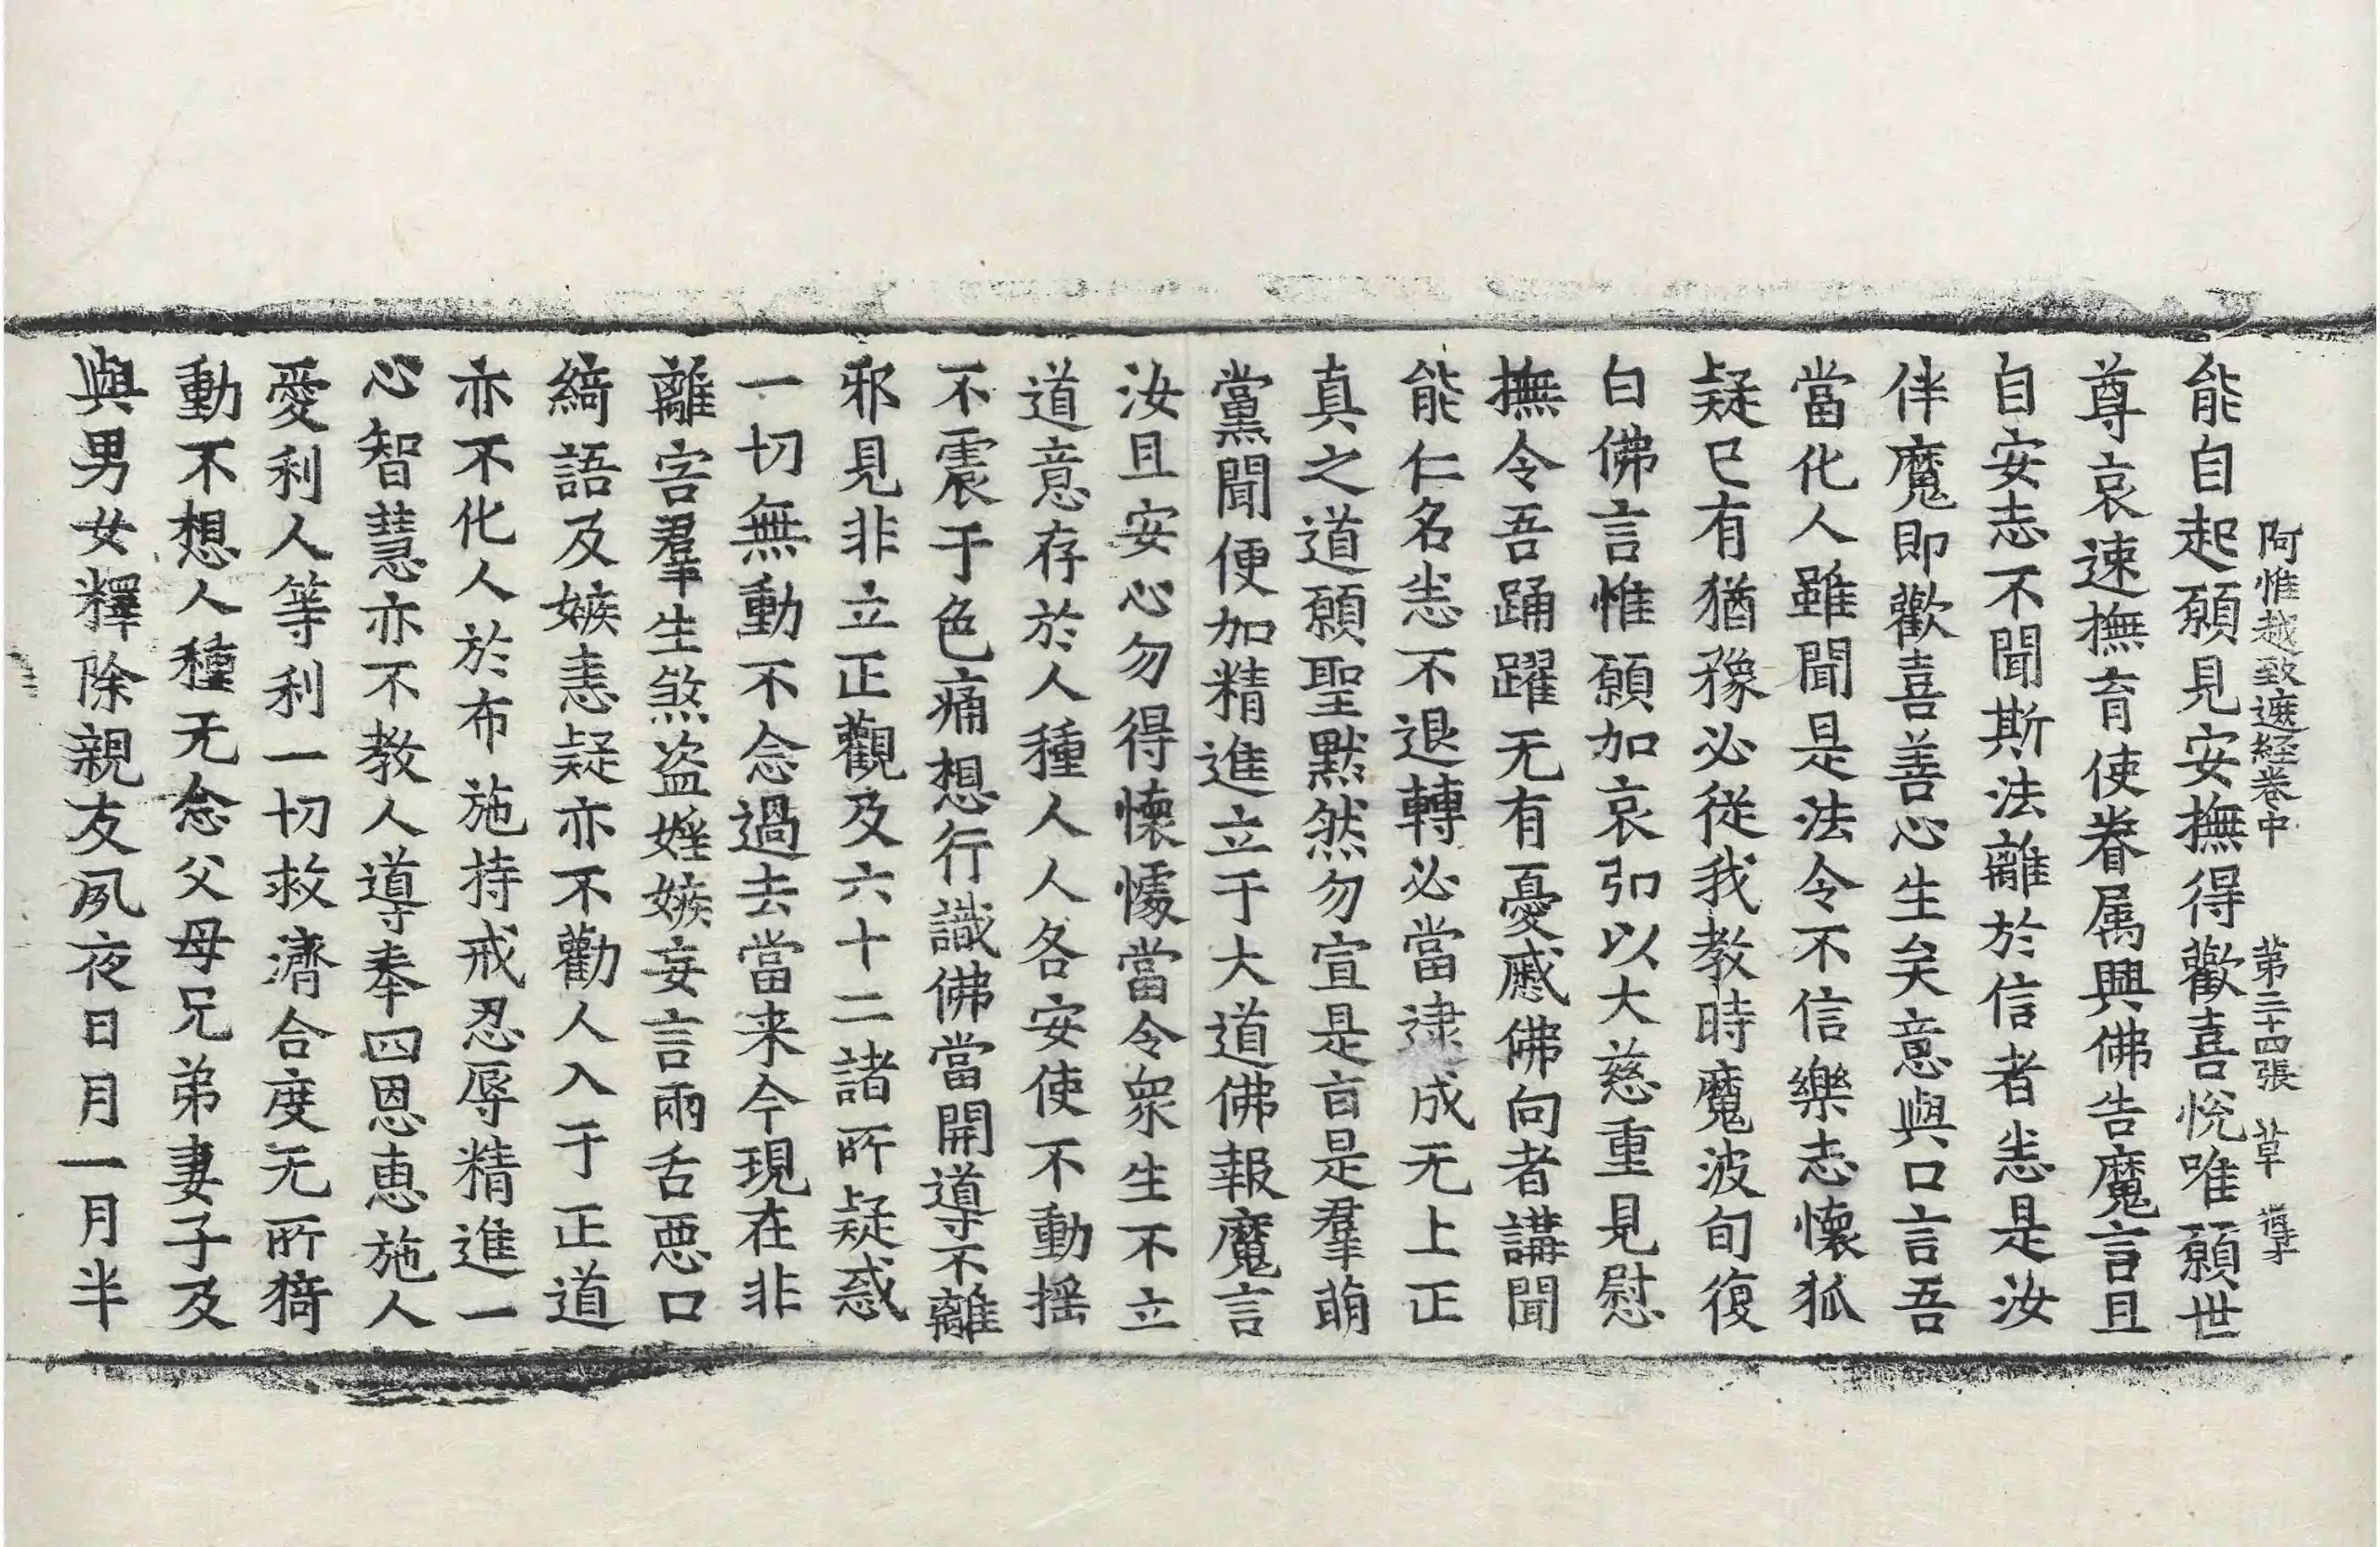 阿惟越致遮經卷中 苐三十四張 草 導
能自起願見安撫得歡喜恱唯願世
尊哀速撫育使眷属興佛告魔言且
自安志不聞斯法離於信者恙是汝
伴魔即歡喜善心生矣意與口言吾
當化人雖聞是法令不信樂志懷狐
疑已有猶豫必從我教時魔波旬復
白佛言惟願加哀引以大慈重見慰
撫令吾踊躍无有憂慼佛向者講聞
能仁名恙不退轉必當逮成无上正
真之道願聖默然勿宣是盲是羣萌
黨聞便加精進立于大道佛報魔言
汝且安心勿得懷懅當令衆生不立
道意存於人種人人各安使不動揺
不震于色痛想行識佛當開導不離
邪見非立正觀及六十二諸所疑惑
一切無動不念過去當来今現在非
離害羣生煞盗婬嫉妄言兩舌惡口
綺語及嫉恚疑亦不勸人入于正道
亦不化人於布施持戒忍辱精進一
心智慧亦不教人導奉四恩惠施人
愛利人等利一切救濟合度无所猗
動不想人種无念父母兄弟妻子及
與男女釋除親友夙夜日月一月半